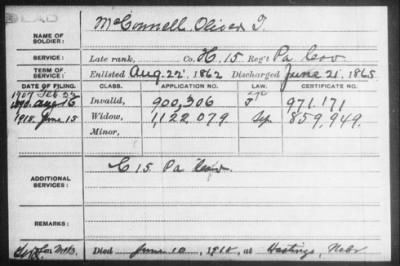 NAME OF SOLDIER: McConnell, Oliver T.
SERVICE: Late rank, Co. H. 15 Reg't Pa Cav
TERM OF SERVICE: Enlisted Aug. 22, 1862 Discharged June 21, 1865
DATE OF FILING. CLASS. APPLICATION NO. LAW. CERTIFICATE NO.
1907 Feb
Aug 16 Invalid, 900,306 971.171
1918. June 15 Widow, 1122,079 859,949.
Minor,
ADDITIONAL SERVICES: C 15. Pa Cav.
REMARKS:
Died June 10, 1918, at Hastings, Nebr